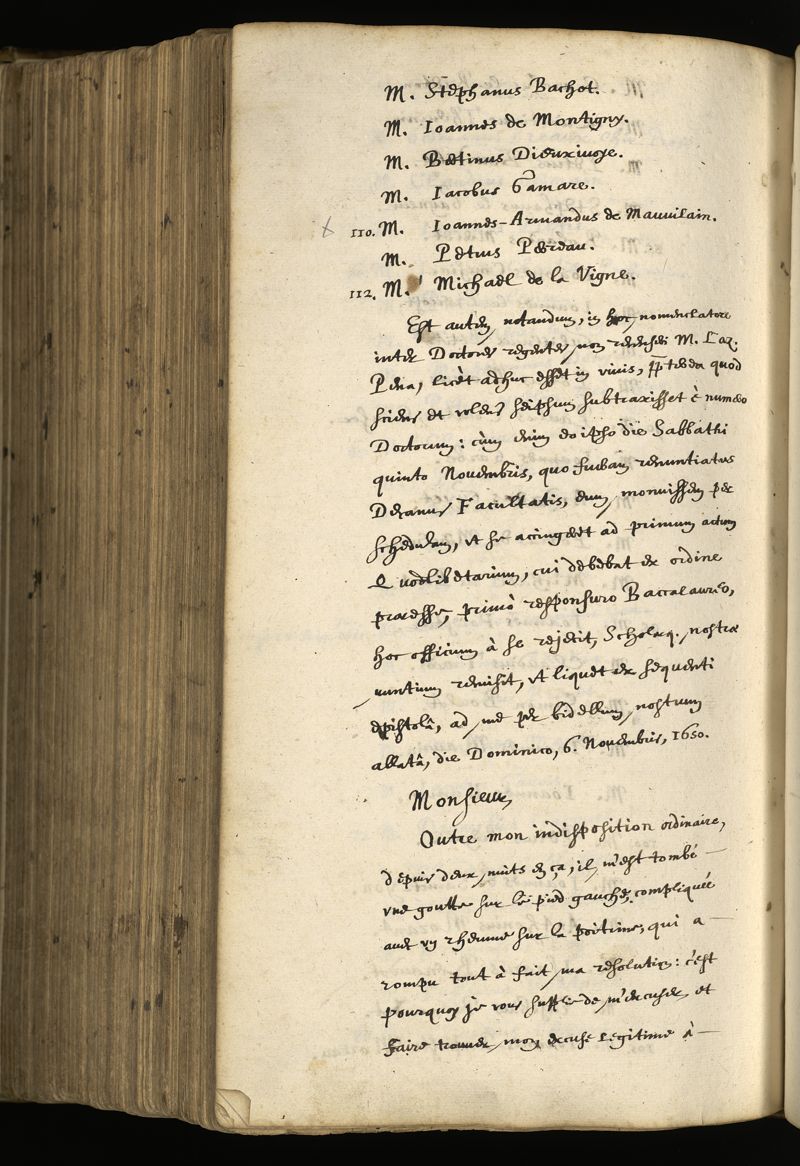 M. Stephanus Bachot.
M. Ioannes de Montigny.
M. Bœtinus Dieuxivoye.
M. Iacobus Gamare.
110. M. Ioannes-Armandus de Mauvilain.
M. Petrus Perreau.
112. M. Michael de la Vigne.
Est autem notandum, in hoc nomenclatore
inter Doctores regentes non recenseri M. Laz.
Pena, licèt adhuc esset in vivis, propterea quod
sciens et volens seipsum subtraxisset è numero
Doctorum: cùm enim eo ipso die Sabbathi
quinto Novembris, quo fueram renuntiatus
Decanus Facultatis, eum monuissem per
schedulam, vt se accingeret ad primum actum
Quodlibetarium, cui debebat ex ordine
præesse, primò responsuro Baccalaureo,
hoc officium à se rejecit, Scholæq. nostræ
nuntium remisit, vt liquet ex sequenti
epistolâ, ad me per bidellum nostrum
allatâ, die Dominico, 6. Novembris, 1650.
Monsieur,
Outre mon indisposition ordinaire,
depuis deux nuits en ça, il m'est tombé
vne goutte sur le pied gauche, compliquée
avec vn rheume sur la poitrine, qui a
rompu tout à fait ma resolution: c'est
pourquoy je vous supplie de m'excuser, et
faire trouver mon excuse legitime à